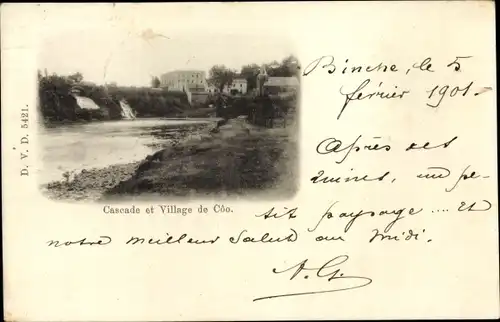 D. V. D. 5421.
Binche, le 5
février 1901.
Après des
ruines, un pe-
Cascade et Village de Côo.
tit paysage .... Et
notre meilleur salut au midi.
A. G.